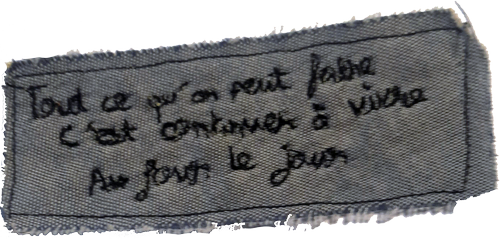 Tout ce qu'on peut faire
c'est continuer à vivre
Au jour le jour